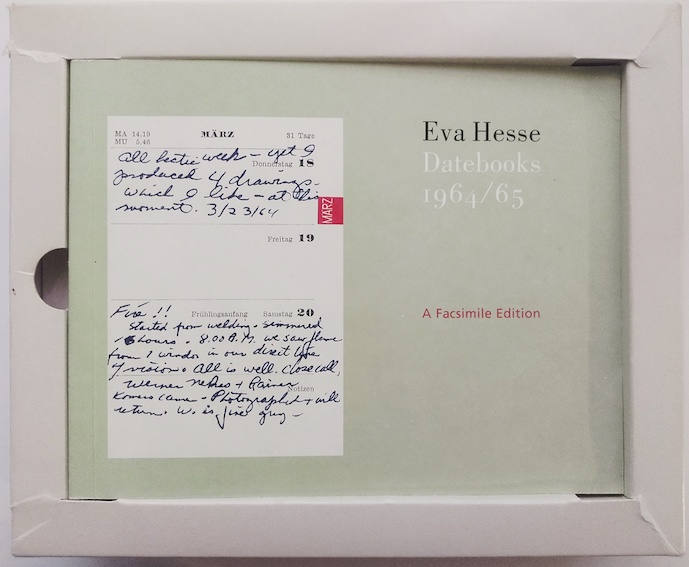 MA 14.19 MÄRZ 31 Tage
MU 5.46
All hectic week – yet I
Donnerstag 18
produced 4 drawings –
which I like – at this
moment. 3/23/64
MÄRZ
Freitag 19
Fire !!
Frühlingsanfang Samstag 20
Started from welding. simmered
hours. 8:00 A.M. we saw flame
from 1 window in our direct line
of vision. All is well. close call,
Werner + Rainer
Notizen
came – Photographed + will
return. W. is fine guy –
Eva Hesse
Datebooks
1964/65
A Facsimile Edition